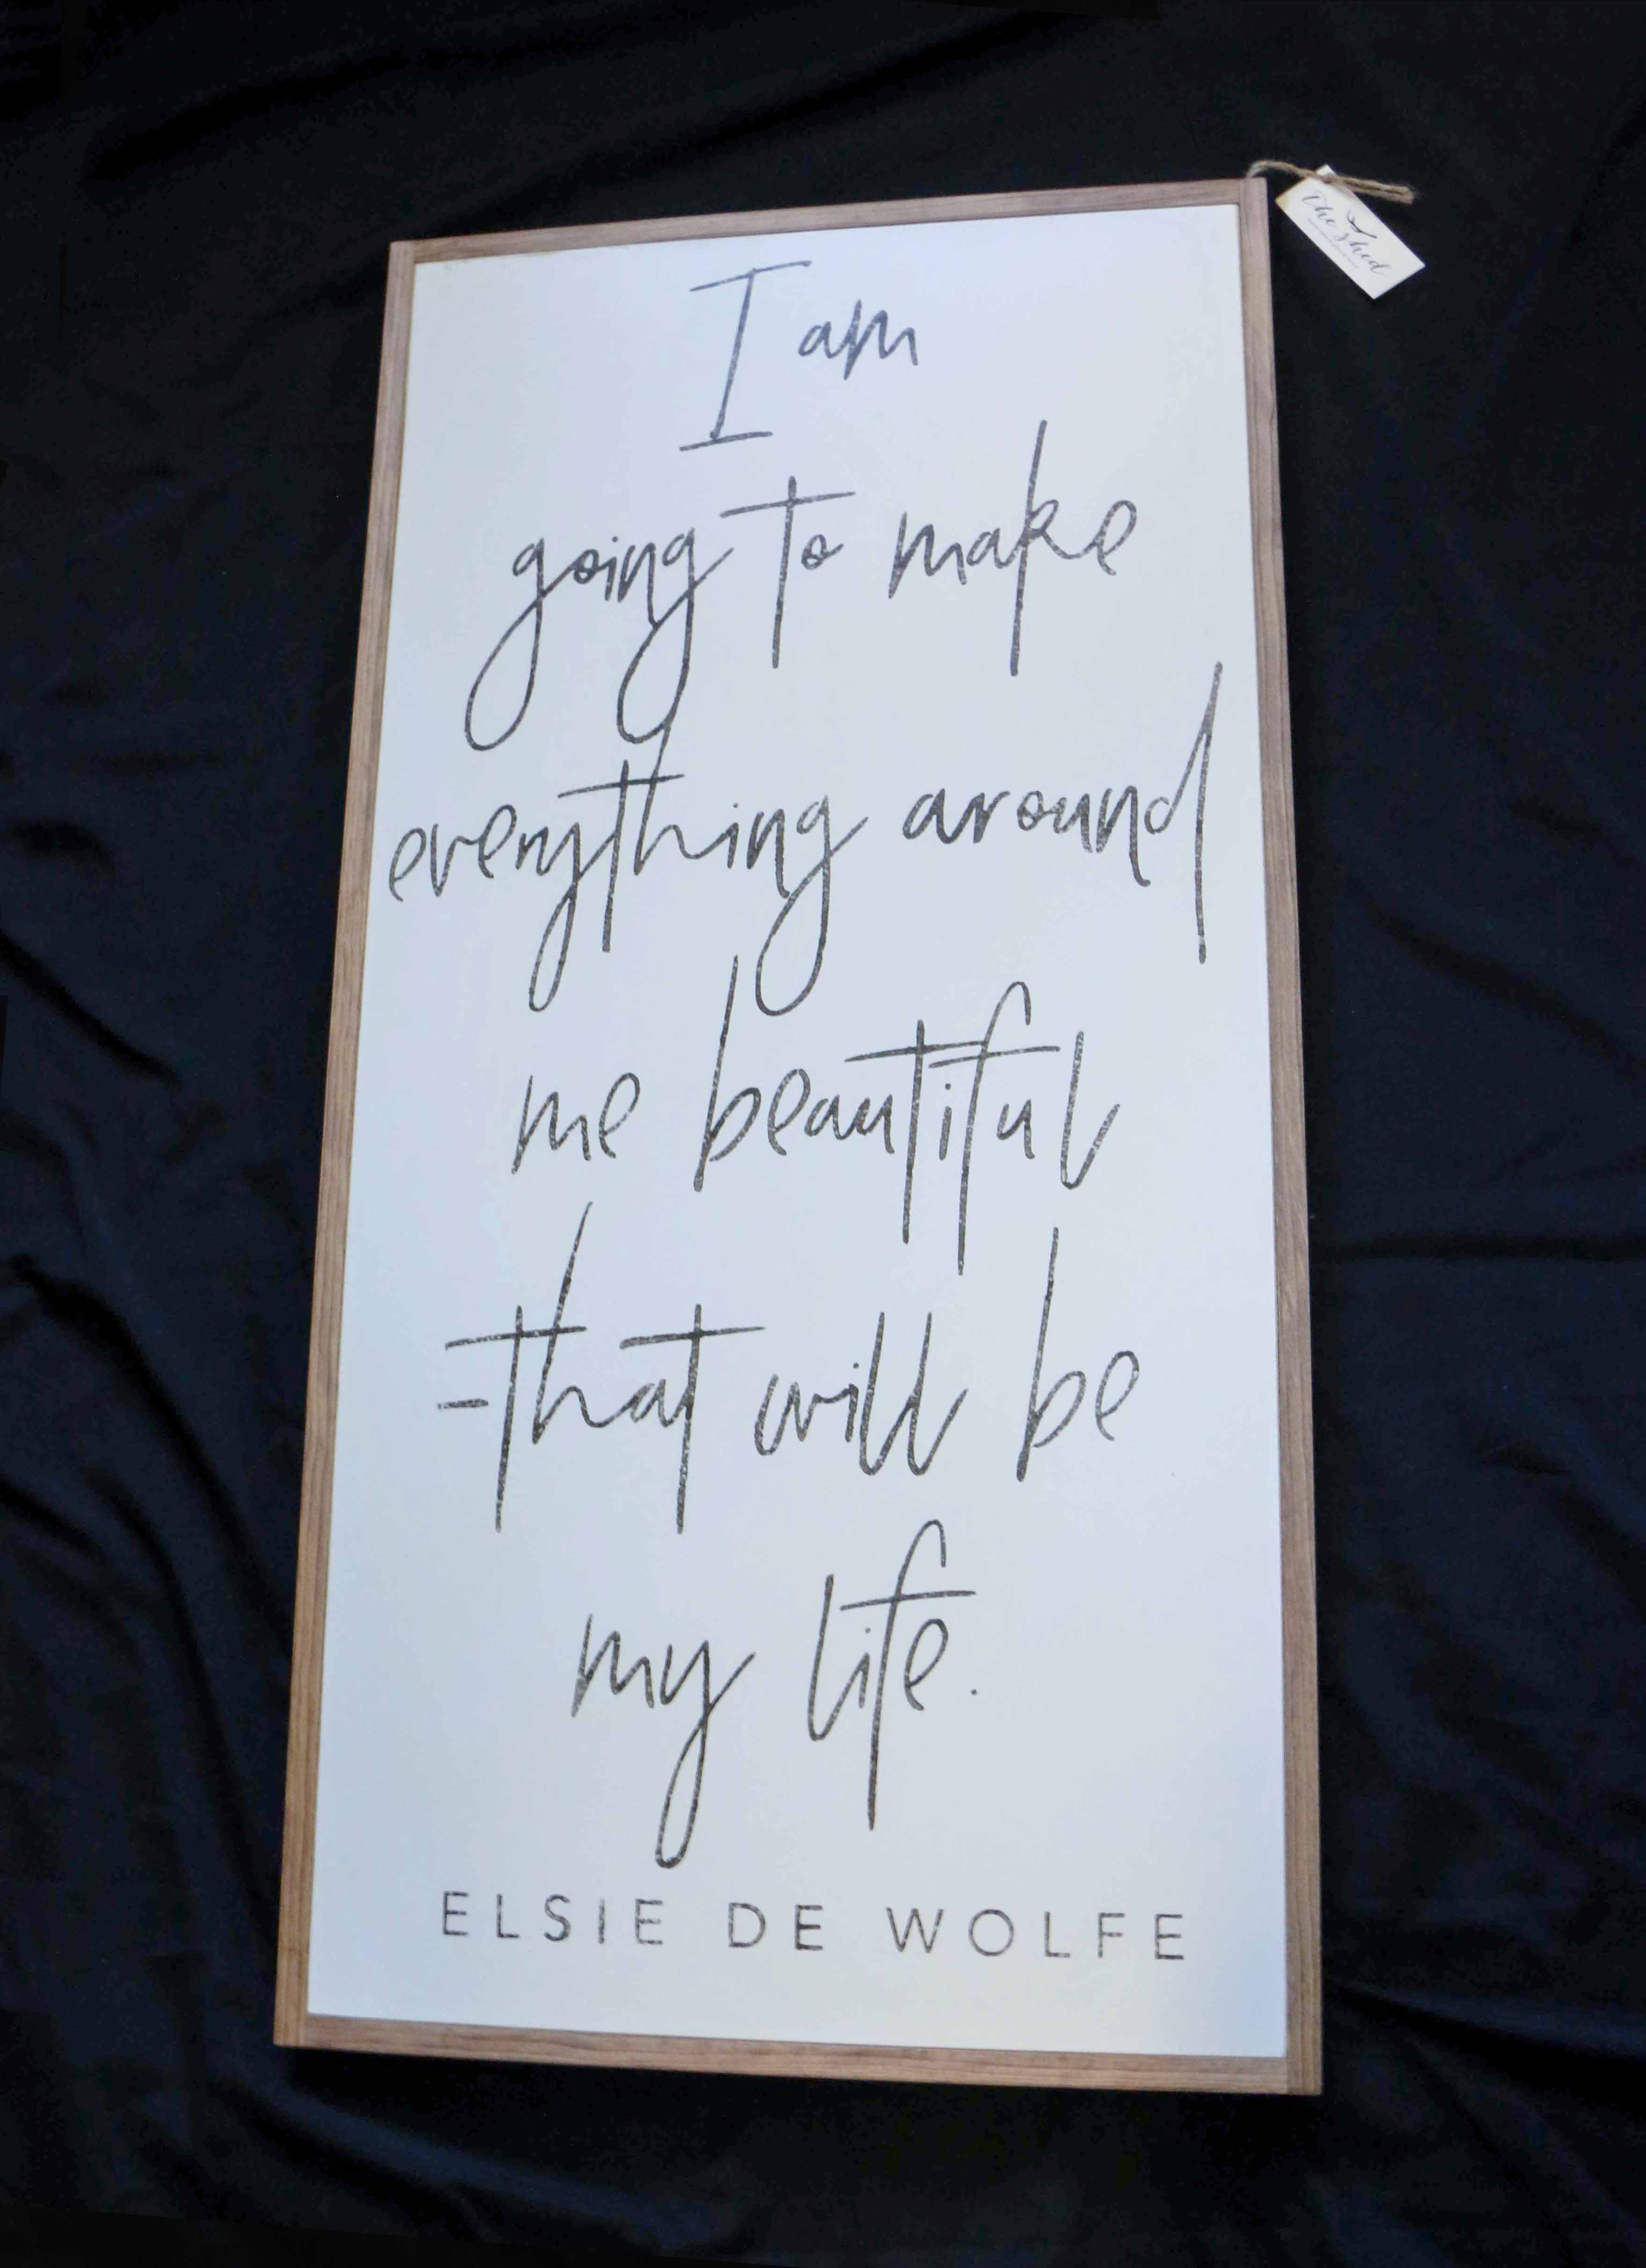 I am
going to make
everything around
me beautiful
-that will be
my life.
ELSIE DE WOLFE
the shed